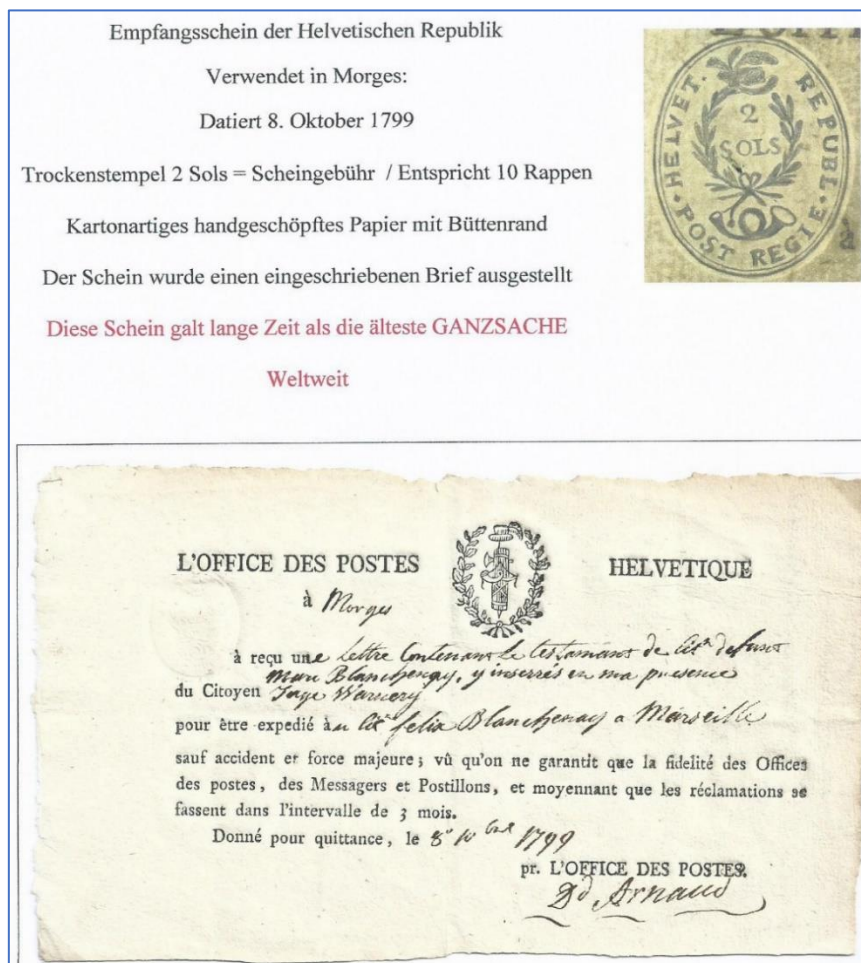 Empfangsschein der Helvetischen Republik
Verwendet in Morges:
Datiert 8. Oktober 1799
Trockenstempel 2 Sols = Scheingebühr / Entspricht 10 Rappen
Kartonartiges handgeschöpftes Papier mit Büttenrand
Der Schein wurde einen eingeschriebenen Brief ausgestellt
Diese Schein galt lange Zeit als die älteste GANZSACHE
Weltweit
HELVET. REPUBL. POST REGIE.
2
SOLS
à
L'OFFICE DES POSTES HELVETIQUE
à Morges
à reçu une Lettre Contenant Le testamant de Cit.n defunt
Marc Blanchenay, y inserrés en ma presence
du Citoyen Juge Warnery
pour être expedié à u Cit.n felix Blanchenay a Marseille
sauf accident et force majeure; vû qu'on ne garantit que la fidelité des Offices
des postes, des Messagers et Postillons, et moyennant que les réclamations se
fassent dans l'intervalle de 3 mois.
Donné pour quittance, le 8e 10bre 1799
pr. L'OFFICE DES POSTES.
Dd Arnaud